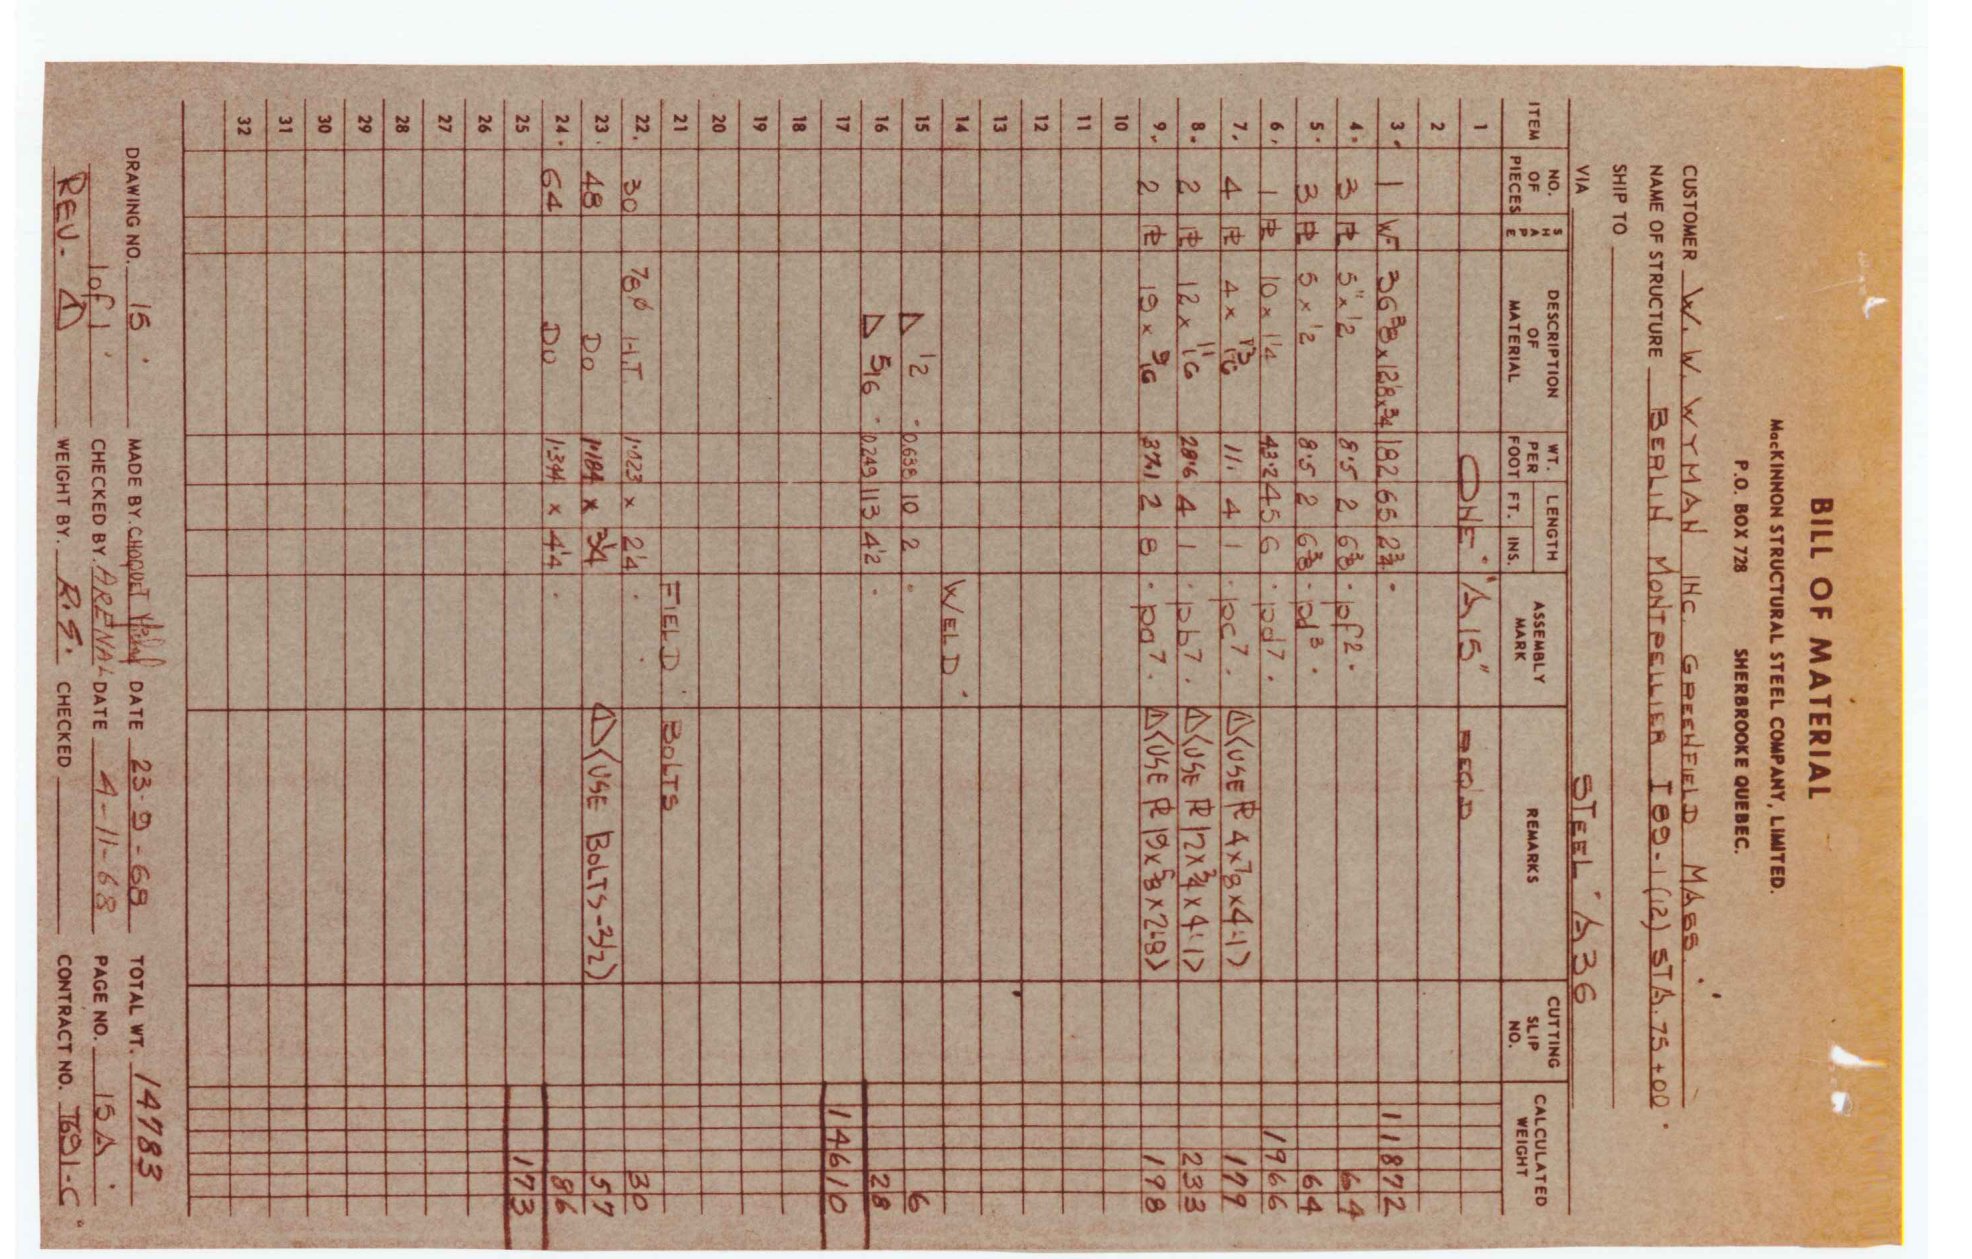 BILL OF MATERIAL
MacKINNON STRUCTURAL STEEL COMPANY, LIMITED.
P.O. BOX 728 SHERBROOKE QUEBEC.
CUSTOMER W. W. WYMAN INC. GREENFIELD MASS.
NAME OF STRUCTURE BERLIN MONTPELLIER I89-1(12) STA. 75+00.
SHIP TO
VIA STEEL A36
ITEM NO. OF PIECES SHAPE DESCRIPTION OF MATERIAL WT. PER FOOT LENGTH FT. INS. ASSEMBLY MARK REMARKS CUTTING SLIP NO. CALCULATED WEIGHT
1 ONE "A15" REQ'D
2
3. 1 WF 36 3/8 x 12 1/8 x 3/4 182 65 2 3/4 11872
4. 3 PL 5" x 1/2 8.5 2 6 3/8 pf2. 64
5. 3 PL 5 x 1/2 8.5 2 6 3/8 pd3. 64
6. 1 PL 10 x 1/4 43.3 45 6 pd7. 1966
7. 4 PL 4 x 13/16 11. 4 1 pc7. △(USE PL 4x7/8x4-1) 179
8. 2 PL 12 x 11/16 28.6 4 1 pb7. △(USE PL 12x3/4x4-1) 233
9. 2 PL 19 x 9/16 37.1 2 8 pa7. △(USE PL 19x5/8x2-8) 198
10
11
12
13
14 WELD.
15 △ 1/2 - 0.638 10 2 6
16 △ 5/16 - 0.249 113 4 1/2 28
17 14610
18
19
20
21 FIELD BOLTS
22. 30 7/8ø H.T. 1.023 x 2 1/4 30
23. 48 DO 1.184 x 3 1/4 △(USE BOLTS-3 1/2) 57
24. 64 DO 1.344 x 4 1/4 86
25 173
26
27
28
29
30
31
32
DRAWING NO. 15 MADE BY. CHOQUET DATE 23-9-68 TOTAL WT. 14783
1 of 1 CHECKED BY. ARENAL DATE 4-11-68 PAGE NO. 15A
REV. △ WEIGHT BY. R.S. CHECKED CONTRACT NO. T691-C